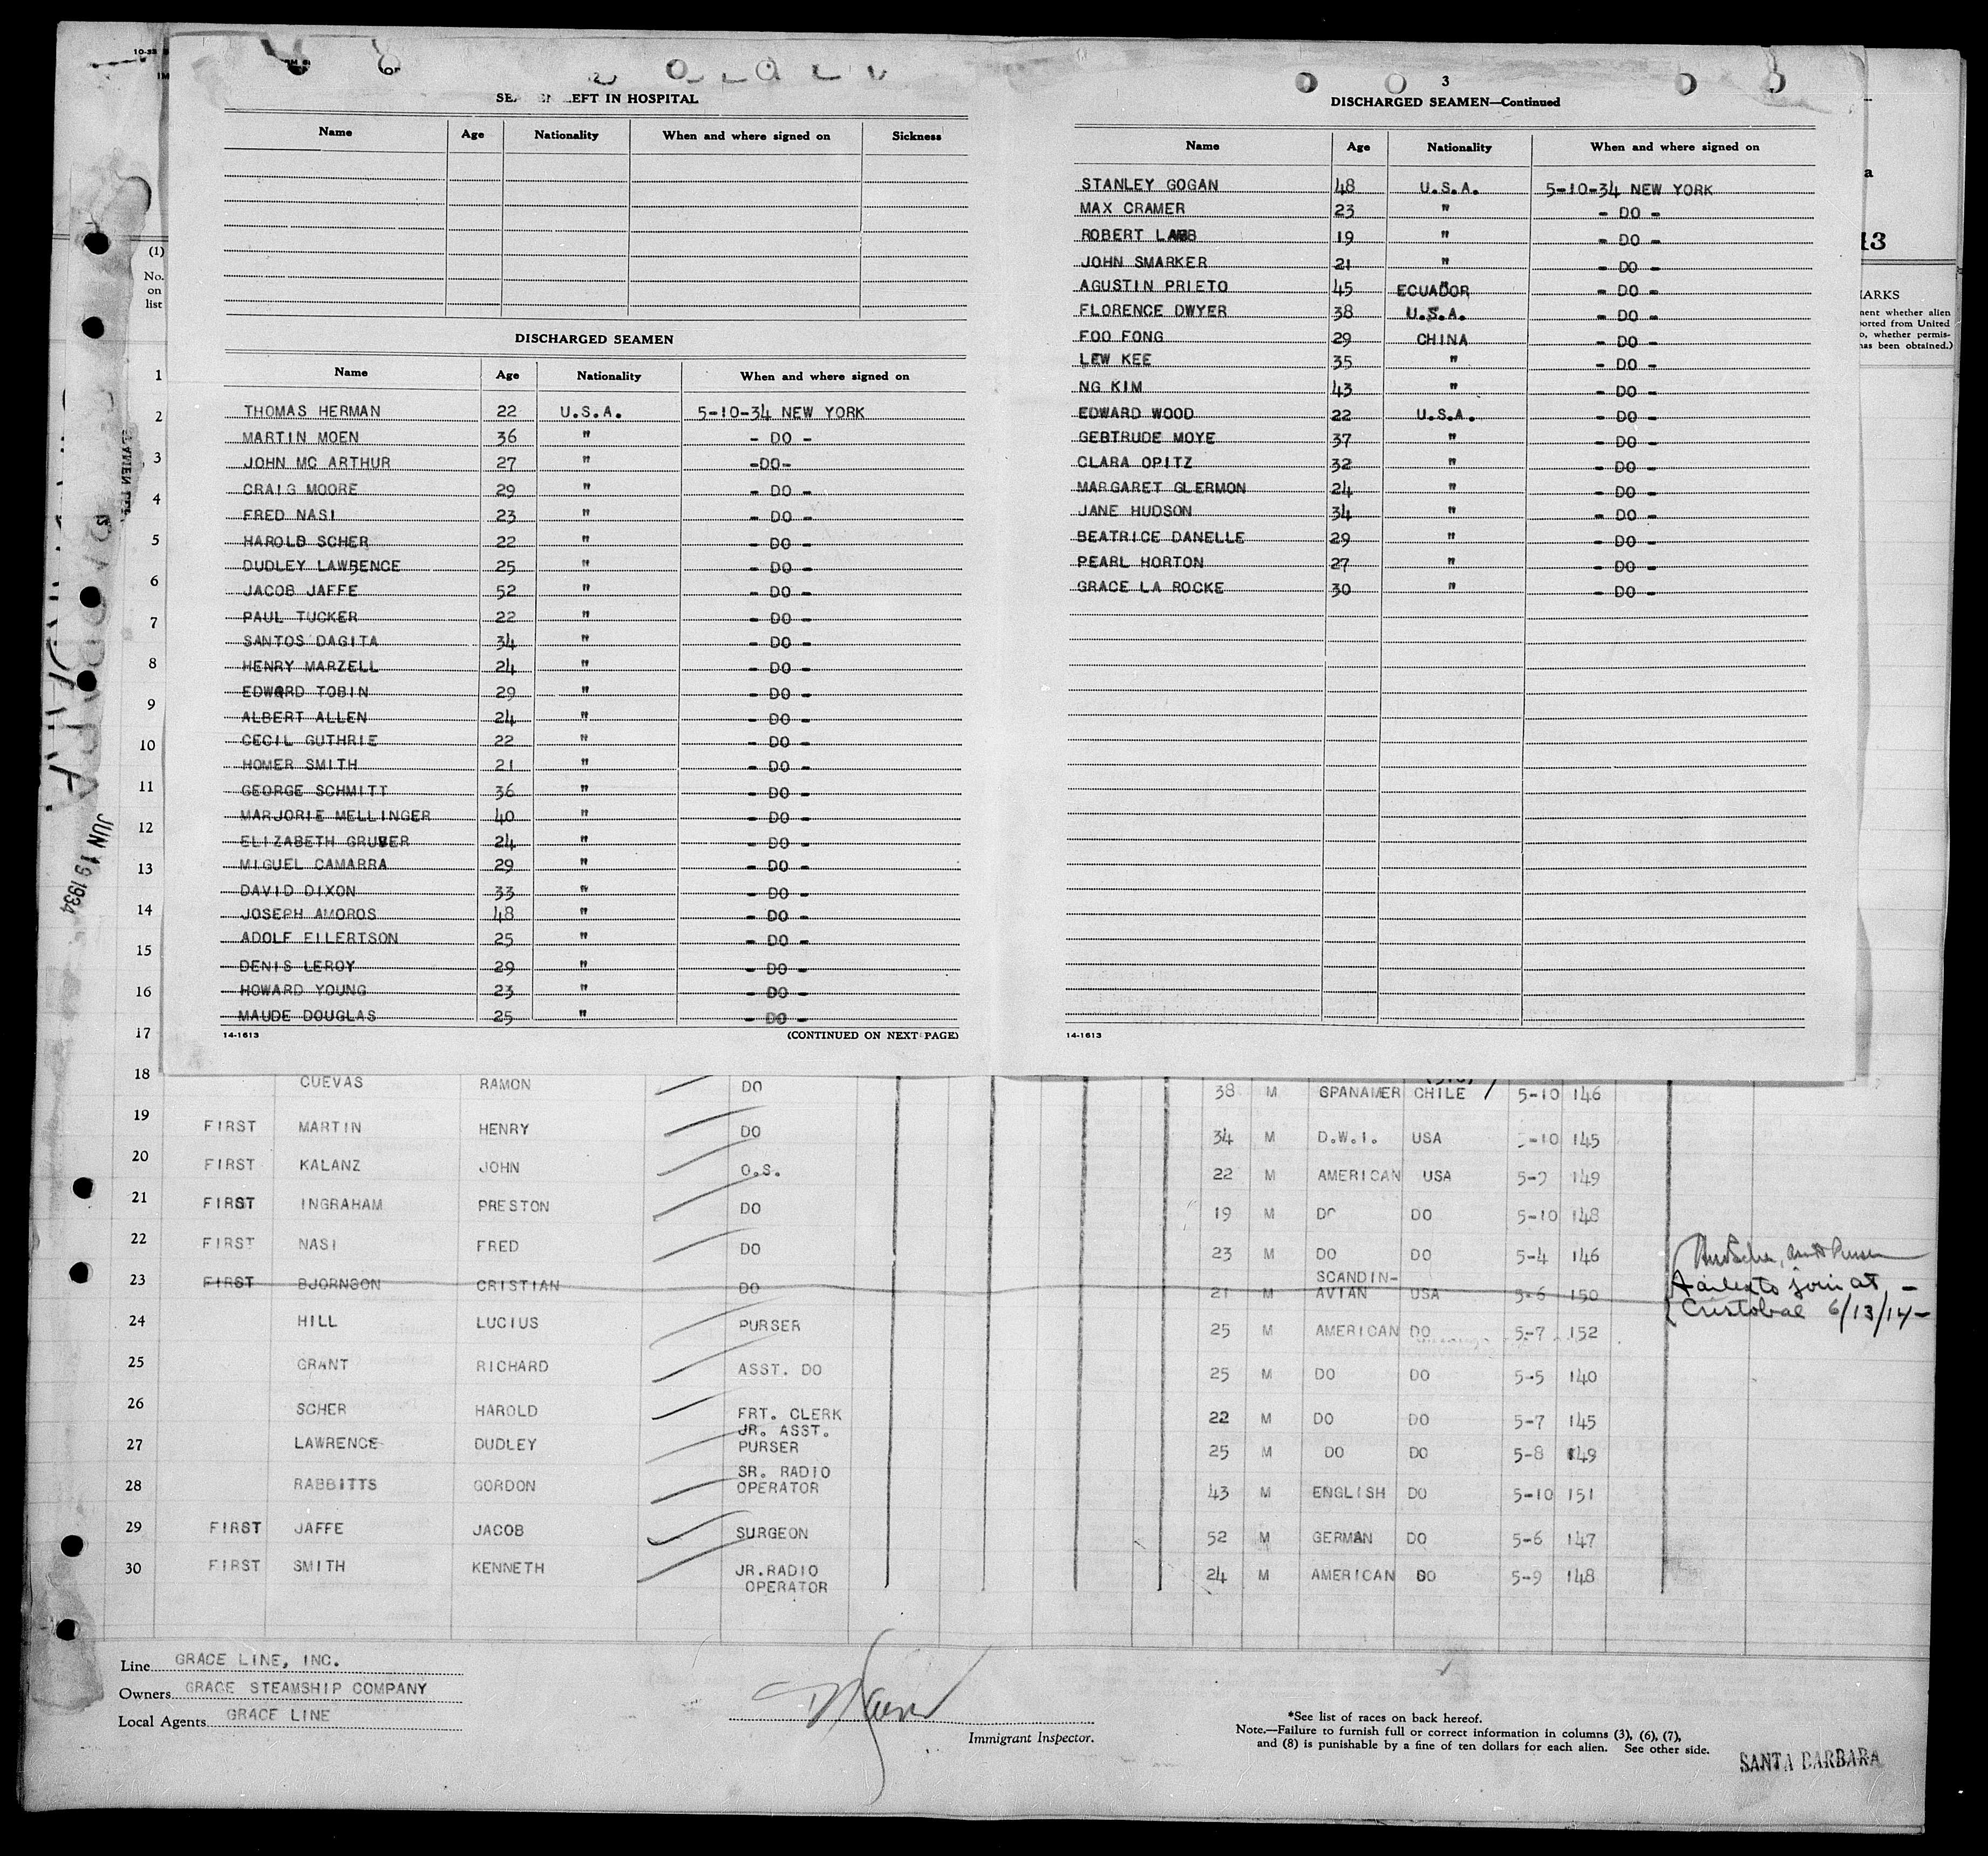 SE EN LEFT IN HOSPITAL
Name Age Nationality When and where signed on Sickness
DISCHARGED SEAMEN
Name Age Nationality When and where signed on
THOMAS HERMAN 22 U.S.A. 5-10-34 NEW YORK
MARTIN MOEN 36 " - DO -
JOHN MC ARTHUR 27 " -DO-
CRAIG MOORE 29 " - DO -
FRED NASI 23 " - DO -
HAROLD SCHER 22 " - DO -
DUDLEY LAWRENCE 25 " - DO -
JACOB JAFFE 52 " - DO -
PAUL TUCKER 22 " - DO -
SANTOS DAGITA 34 " - DO -
HENRY MARZELL 24 " - DO -
EDWARD TOBIN 29 " - DO -
ALBERT ALLEN 24 " - DO -
CECIL GUTHRIE 22 " - DO -
HOMER SMITH 21 " - DO -
GEORGE SCHMITT 36 " - DO -
MARJORIE MELLINGER 40 " - DO -
ELIZABETH GRUBER 24 " - DO -
MIGUEL CAMARRA 29 " - DO -
DAVID DIXON 33 " - DO -
JOSEPH AMOROS 48 " - DO -
ADOLF EILERTSON 25 " - DO -
DENIS LEROY 29 " - DO -
HOWARD YOUNG 23 " - DO -
MAUDE DOUGLAS 25 " - DO -
14-1613 (CONTINUED ON NEXT PAGE)
3
DISCHARGED SEAMEN—Continued
Name Age Nationality When and where signed on
STANLEY GOGAN 48 U.S.A. 5-10-34 NEW YORK
MAX CRAMER 23 " - DO -
ROBERT LAMB 19 " - DO -
JOHN SMARKER 21 " - DO -
AGUSTIN PRIETO 45 ECUADOR - DO -
FLORENCE DWYER 38 U.S.A. - DO -
FOO FONG 29 CHINA - DO -
LEW KEE 35 " - DO -
NG KIM 43 " - DO -
EDWARD WOOD 22 U.S.A. - DO -
GERTRUDE MOYE 37 " - DO -
CLARA OPITZ 32 " - DO -
MARGARET GLERMON 24 " - DO -
JANE HUDSON 34 " - DO -
BEATRICE DANELLE 29 " - DO -
PEARL HORTON 27 " - DO -
GRACE LA ROCKE 30 " - DO -
14-1613
(1)
No.
on
list
1
2
3
4
5
6
7
8
9
10
11
12
13
14
15
16
17
JUN 19 1934
13
ARKS
ment whether alien
ported from United
o, whether permis-
has been obtained.)
18 CUEVAS RAMON DO 38 M SPANAMER CHILE 5-10 146
19 FIRST MARTIN HENRY DO 34 M D.W.I. USA -10 145
20 FIRST KALANZ JOHN O.S. 22 M AMERICAN USA 5-9 149
21 FIRST INGRAHAM PRESTON DO 19 M DO DO 5-10 148
22 FIRST NASI FRED DO 23 M DO DO 5-4 146
23 FIRST BJORNSON CRISTIAN DO 21 M SCANDIN-
AVIAN USA 5-6 150 Failed to join at
Cristobal 6/13/14
24 HILL LUCIUS PURSER 25 M AMERICAN DO 5-7 152
25 GRANT RICHARD ASST. DO 25 M DO DO 5-5 140
26 SCHER HAROLD FRT. CLERK 22 M DO DO 5-7 145
27 LAWRENCE DUDLEY JR. ASST.
PURSER 25 M DO DO 5-8 149
28 RABBITTS GORDON SR. RADIO
OPERATOR 43 M ENGLISH DO 5-10 151
29 FIRST JAFFE JACOB SURGEON 52 M GERMAN DO 5-6 147
30 FIRST SMITH KENNETH JR.RADIO
OPERATOR 24 M AMERICAN DO 5-9 148
Line GRACE LINE, INC.
Owners GRACE STEAMSHIP COMPANY
Local Agents GRACE LINE
Immigrant Inspector.
*See list of races on back hereof.
Note.—Failure to furnish full or correct information in columns (3), (6), (7),
and (8) is punishable by a fine of ten dollars for each alien. See other side.
SANTA BARBARA